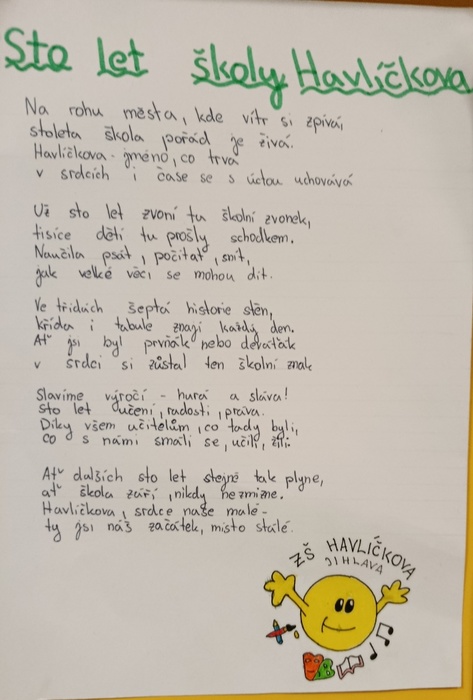 Sto let školy Havlíčkova
Na rohu města, kde vítr si zpívá,
stoletá škola pořád je živá.
Havlíčkova - jméno, co trvá
v srdcích i čase se s úctou uchovává
Už sto let zvoní tu školní zvonek,
tisíce dětí tu prošly schodkem.
Naučila psát, počítat, snít,
jak velké věci se mohou dít.
Ve třídách šeptá historie stěn,
křída i tabule znají každý den.
Ať jsi byl prvňák nebo deváťák
v srdci si zůstal ten školní znak
Slavíme výročí - hurá a sláva!
Sto let učení, radosti, práva.
Díky všem učitelům, co tady byli,
co s námi smáli se, učili, žili.
Ať dalších sto let stejně tak plyne,
ať škola září, nikdy nezmizne.
Havlíčkova, srdce naše malé -
ty jsi náš začátek, místo stálé.
ZŠ HAVLÍČKOVA
JIHLAVA